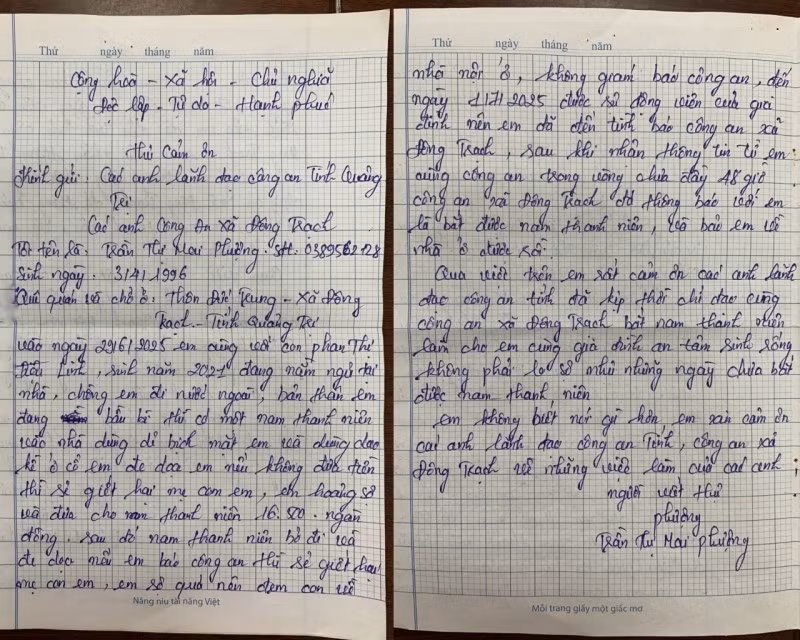 Thứ ngày tháng năm
Cộng hoà - Xã hội - Chủ nghĩa
Độc lập - Tự do - Hạnh phúc
Thư Cảm ơn
Kính gửi: Các anh lãnh đạo công an Tỉnh Quảng
Trị
Các anh Công An xã Đông Trạch
Tôi tên là: Trần Thị Mai Phường. sđt. 0389562128
Sinh ngày. 3/4/1996
Quê quán và chỗ ở: Thôn Đức Trung - Xã Đông
Trạch - Tỉnh Quảng Trị
vào ngày 29/6/2025 em cùng với con phan Thị
Linh, sinh năm 2021 đang nằm ngủ tại
nhà, chồng em đi nước ngoài, bản thân em
đang bầu bì thì có một nam thanh niên
vào nhà dùng dẻ bịch mặt em và dùng dao
kề ở cổ em đe doạ em nếu không đưa tiền
thì sẽ giết hai mẹ con em, em hoảng sợ
và đưa cho nam thanh niên 16.500. ngàn
đồng. sau đó nam thanh niên bỏ đi và
đe doạ nếu em báo công an thì sẽ giết hai
mẹ con em, em sợ quá nên đem con về
Nâng niu tài năng Việt
Thứ ngày tháng năm
nhà nội ở, không giám báo công an, đến
ngày 1/7/2025 được sự động viên của gia
đình nên em đã đến trình báo công an xã
Đông Trạch, sau khi nhận thông tin từ em
cùng công an trong vòng chưa đầy 48 giờ
công an xã Đông Trạch đã thông báo với em
là bắt được nam thanh niên, và bảo em về
nhà ở được rồi.
Qua việc trên em rất cảm ơn các anh lãnh
đạo công an tỉnh đã kịp thời chỉ đạo cùng
công an xã Đông Trạch bắt nam thanh niên
làm cho em cùng gia đình an tâm sinh sống
không phải lo sợ như những ngày chưa bắt
được nam thanh niên
em không biết nói gì hơn, em xin cảm ơn
các anh lãnh đạo công an Tỉnh, công an xã
Đông Trạch về những việc làm của các anh
người viết thư
phường
Trần Thị Mai Phường
Mỗi trang giấy một giấc mơ